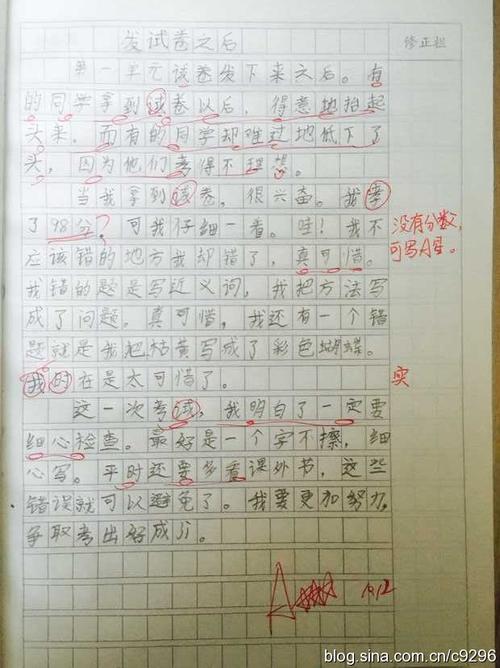 发试卷之后
修正栏
第一单元试卷发下来之后。有
的同学拿到试卷以后，得意地抬起
头来，而有的同学却难过地低下了
头，因为他们考得不理想。
当我拿到试卷，很兴奋。我考
了98分，可我仔细一看。哇！我不
应该错的地方我却错了，真可惜。
我错的题是写近义词，我把方法写
成了问题。真可惜，我还有一个错
题就是我把枯黄写成了彩色蝴蝶。
我时在是太可惜了。
这一次考试，我明白了一定要
细心检查。最好是一个字不擦，细
心写。平时还要多看课外节，这些
错误就可以避免了。我要更加努力，
争取考出好成ji。
没有分数，
可写A星。
实
A
10.12
blog.sina.com.cn/c9296